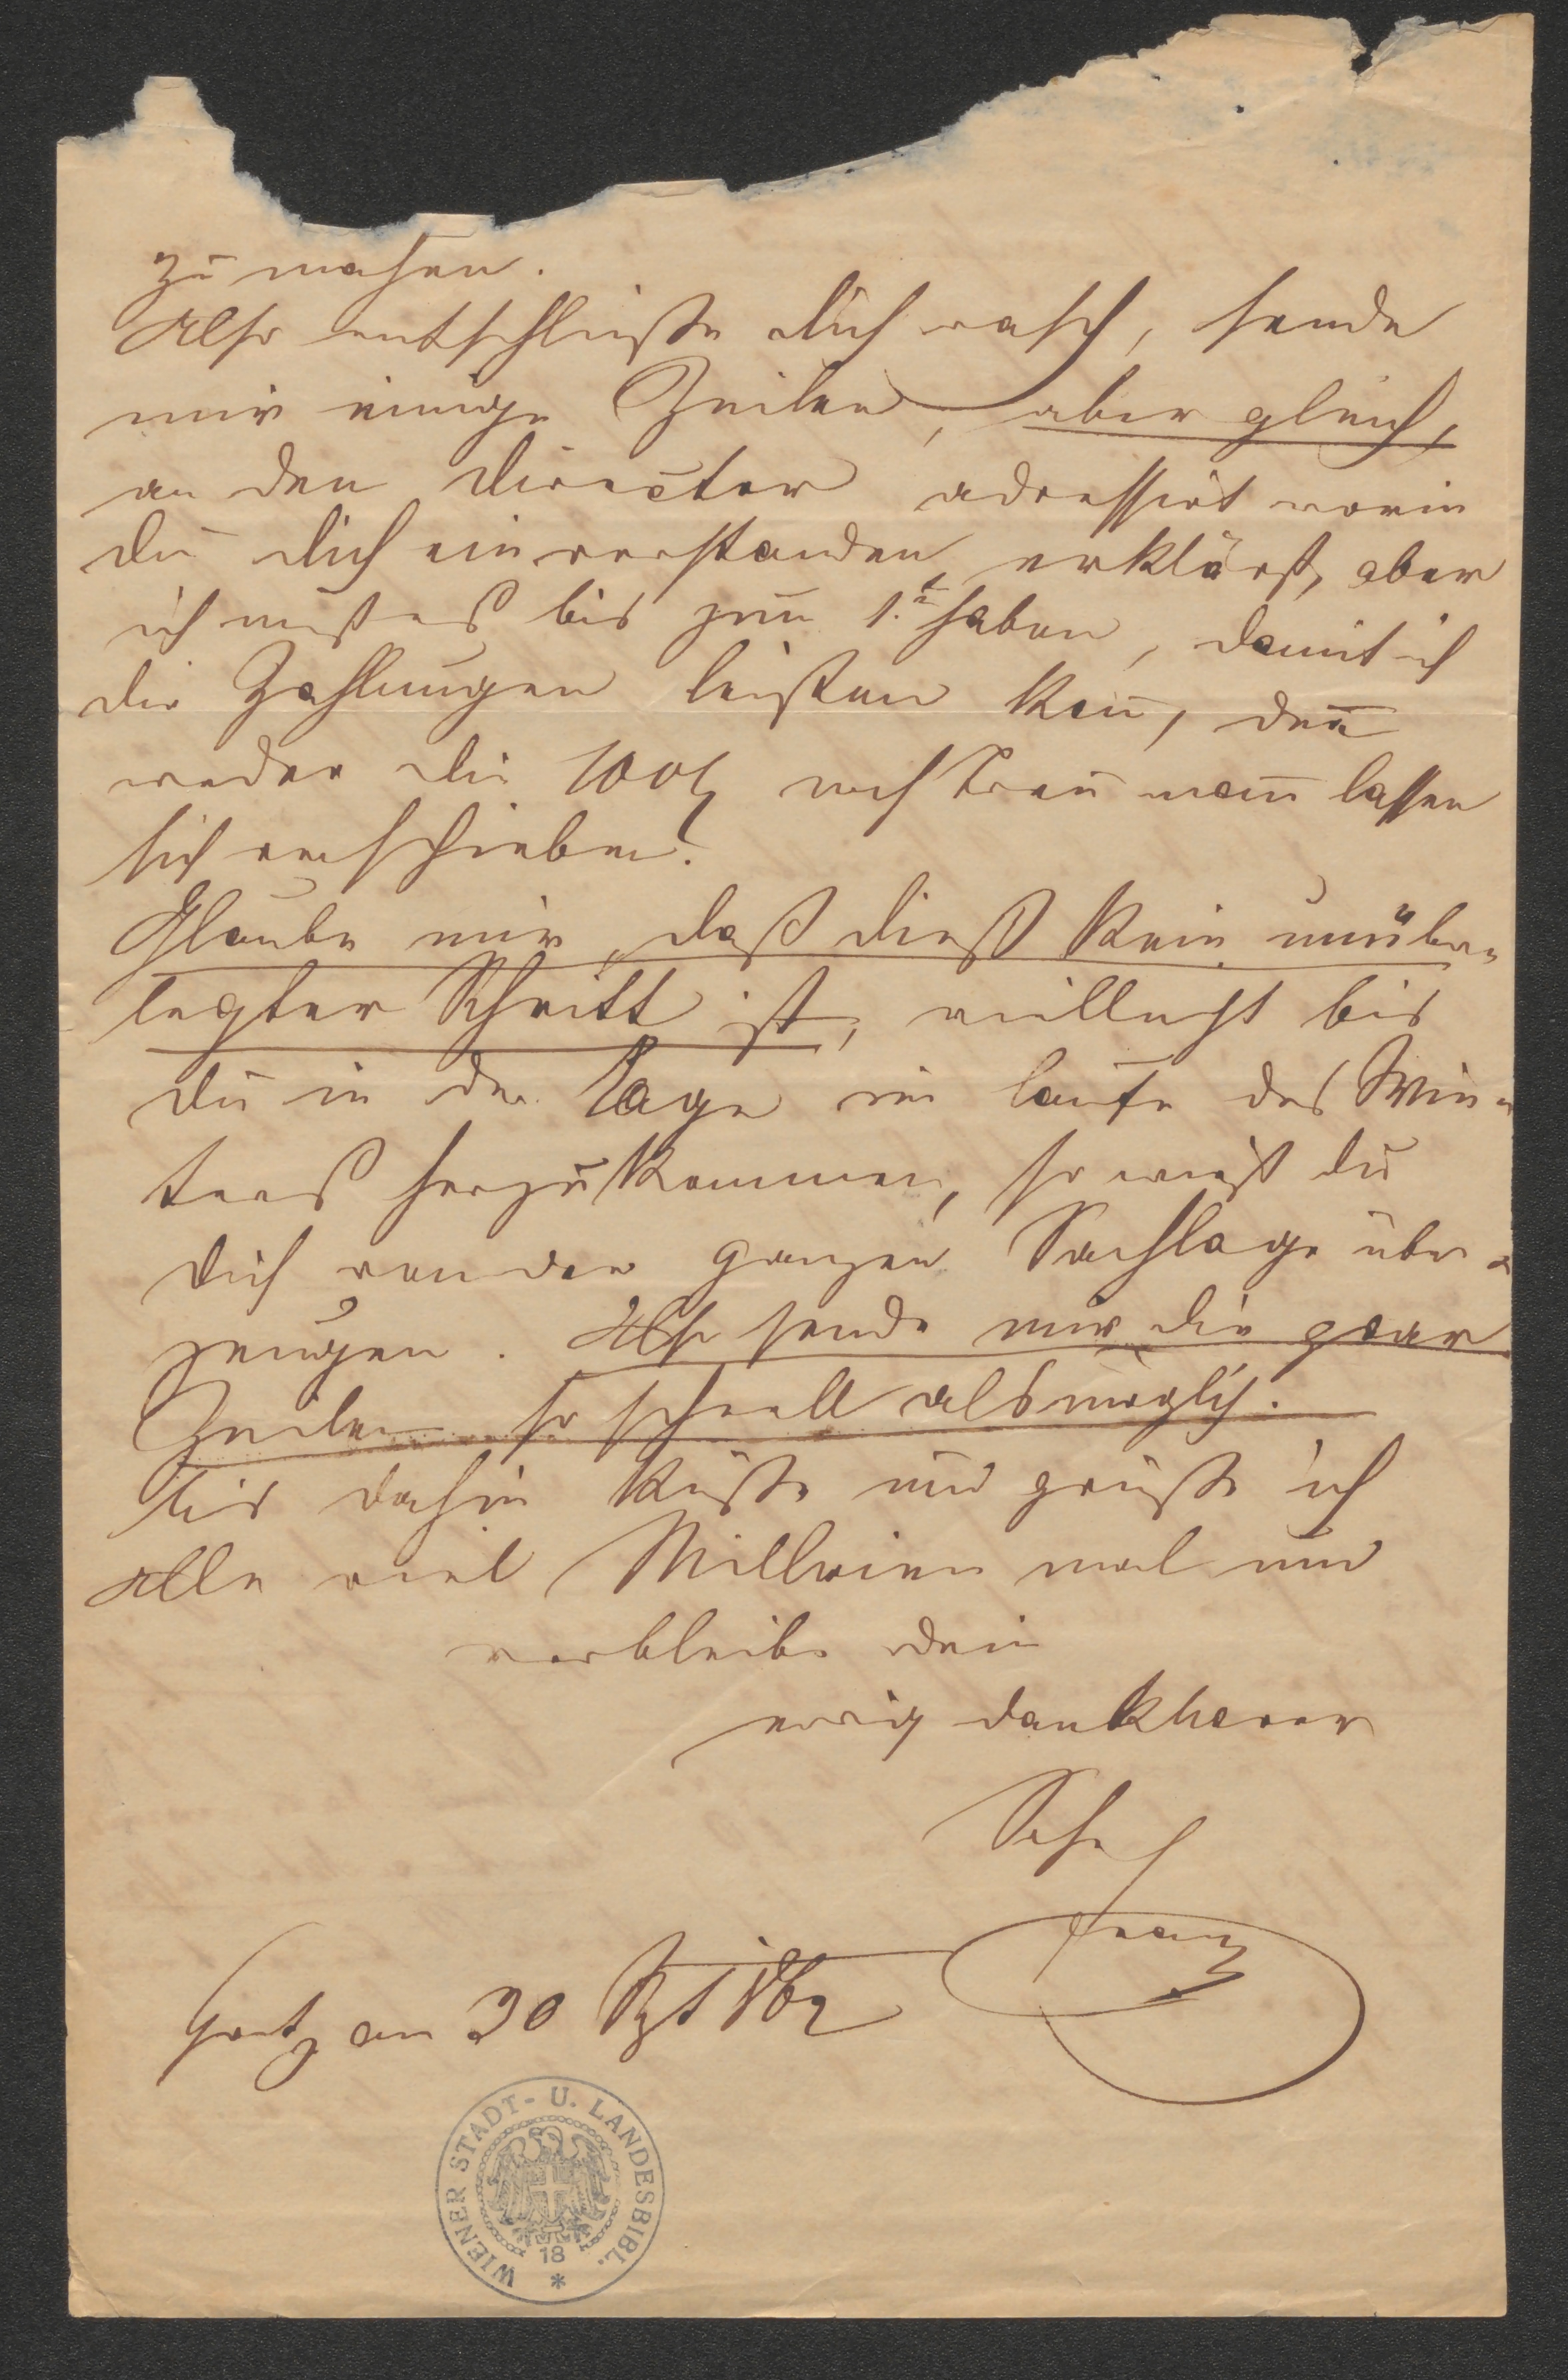 zu machen.
Also entschließe dich rasch, sende
mir einige Zeilen, aber gleich,
an den Director adressirt worin
du dich einverstanden erklärst, aber
ich muß es bis zum 1.t haben, damit ich
die Zahlungen leisten kan̄, den̄
weder die 100 f noch Trau man̄ lassen
sich verschieben!
Glaube mir, daß dieß kein unüber-
legter Schritt ist, villeicht bis
du in der Lage im laufe des Win-
terß herzukommen, so wirst du
dich von der ganzen Sachlage über-
zeugen. Also sende mir die paar
Zeilen so schnell als möglich.
bis dahin küsse und grüße ich
Alle viel Millionen mal und
verbleibe dein
ewig dankbarer
Sohn
Franz
Gratz am 30 Spt 862
WIENER STADT- U. LANDESBIBL.
18